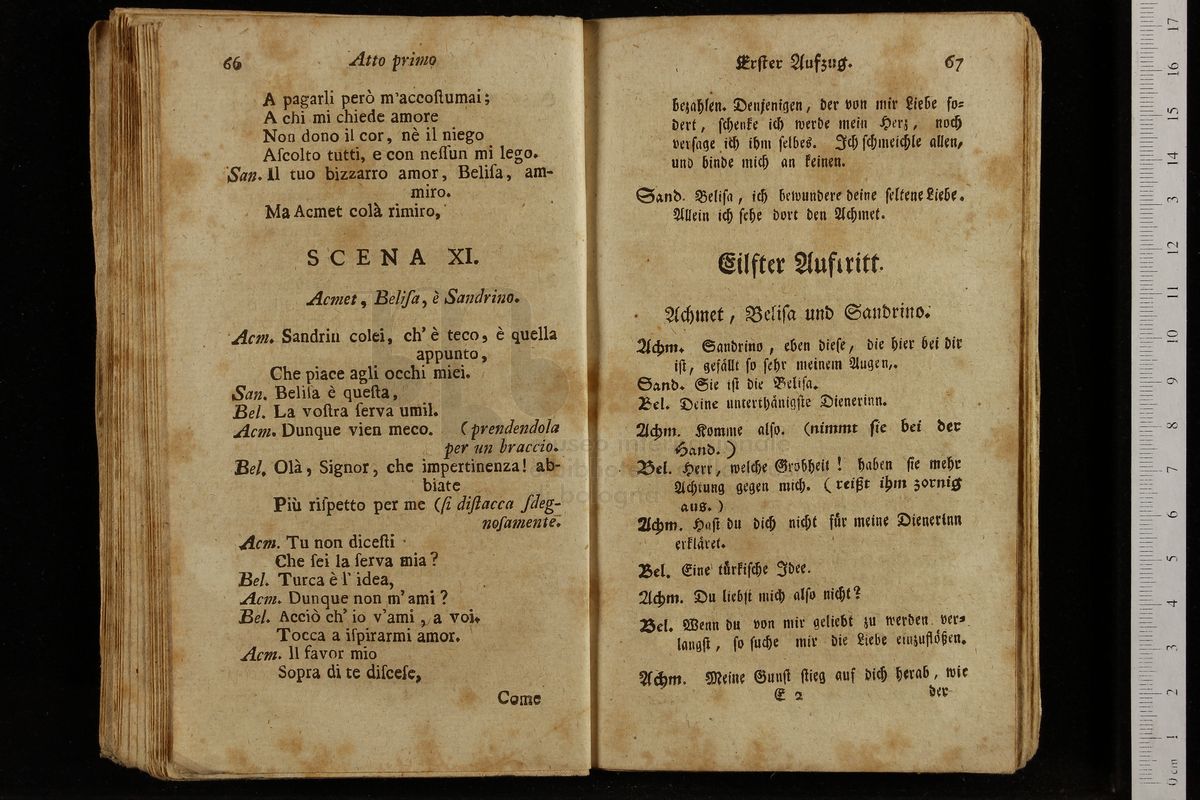 66 Atto primo
A pagarli però m'accoſtumai;
A chi mi chiede amore
Non dono il cor, nè il niego
Aſcolto tutti, e con neſſun mi lego.
San. Il tuo bizzarro amor, Beliſa, am-
miro.
Ma Acmet colà rimiro,
SCENA XI.
Acmet, Beliſa, è Sandrino.
Acm. Sandrin colei, ch' è teco, è quella
appunto,
Che piace agli occhi miei.
San. Beliſa è queſta,
Bel. La voſtra ſerva umil.
Acm. Dunque vien meco. (prendendola
per un braccio.
Bel. Olà, Signor, che impertinenza! ab-
biate
Più riſpetto per me (ſi diſtacca ſdeg-
noſamente.
Acm. Tu non diceſti
Che ſei la ſerva mia?
Bel. Turca è l' idea,
Acm. Dunque non m' ami?
Bel. Acciò ch' io v'ami, a voi.
Tocca a iſpirarmi amor.
Acm. Il favor mio
Sopra di te diſceſe,
Come
Erſter Aufzug. 67
bezahlen. Denjenigen, der von mir Liebe fo=
dert, ſchenke ich werde mein Herz, noch
verſage ich ihm ſelbes. Ich ſchmeichle allen,
und binde mich an keinen.
Sand. Beliſa, ich bewundere deine ſeltene Liebe.
Allein ich ſehe dort den Achmet.
Eilfter Auftritt.
Achmet, Beliſa und Sandrino.
Achm. Sandrino, eben dieſe, die hier bei dir
iſt, gefällt ſo ſehr meinem Augen,.
Sand. Sie iſt die Beliſa.
Bel. Deine unterthänigſte Dienerinn.
Achm. Komme alſo. (nimmt ſie bei der
Hand.)
Bel. Herr, welche Grobheit! haben ſie mehr
Achtung gegen mich. (reißt ihm zornig
aus.)
Achm. Haſt du dich nicht für meine Dienerinn
erkläret.
Bel. Eine türkiſche Idee.
Achm. Du liebſt mich alſo nicht?
Bel. Wenn du von mir geliebt zu werden ver=
langſt, ſo ſuche mir die Liebe einzuflößen.
Achm. Meine Gunſt ſtieg auf dich herab, wie
E 2 der